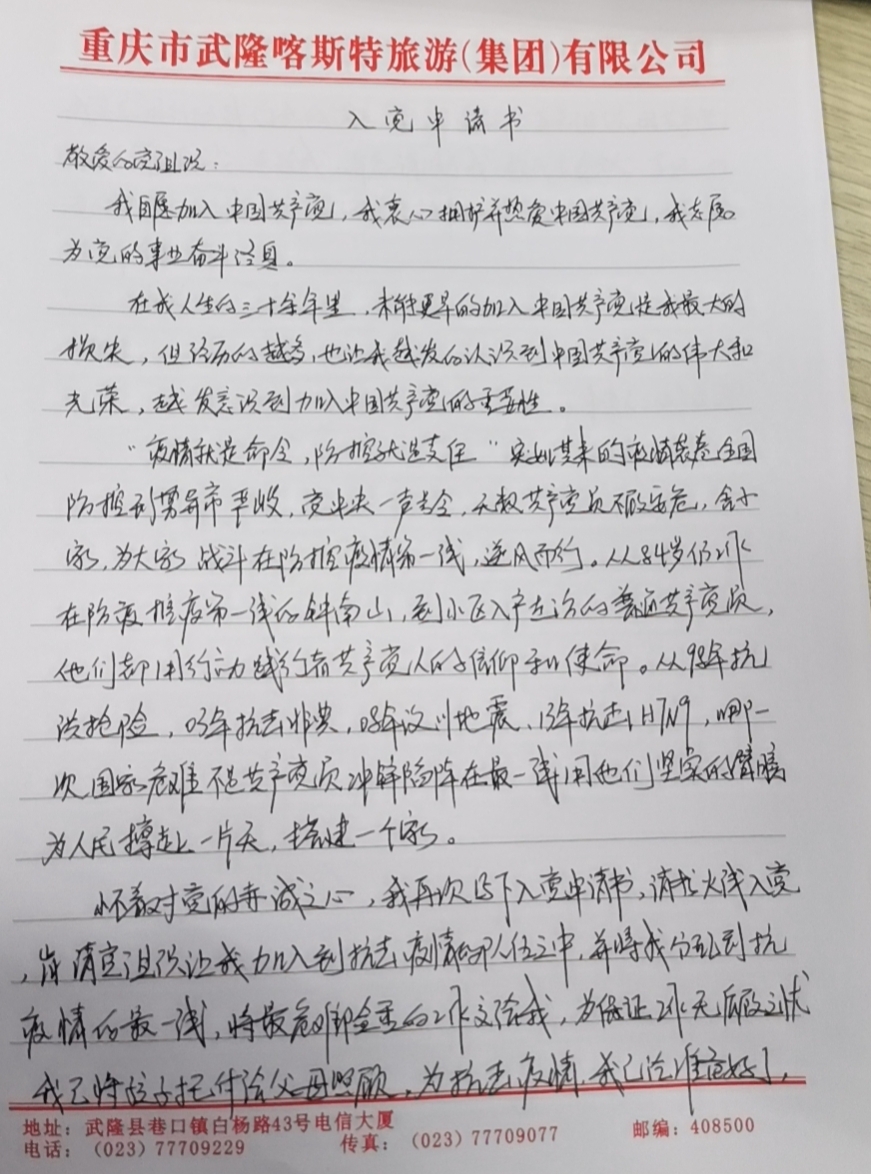 重庆市武隆喀斯特旅游(集团)有限公司
入党申请书
敬爱的党组织：
我自愿加入中国共产党，我衷心拥护并热爱中国共产党，我志愿
为党的事业奋斗终身。
在我人生的三十余年里，未能更早的加入中国共产党是我最大的
损失，但经历的越多，也让我越发的认识到中国共产党的伟大和
光荣，越发意识到加入中国共产党的重要性。
“疫情就是命令，防控就是责任”突如其来的疫情袭卷全国
防控形势异常严峻，党中央一声令令，无数共产党员不顾安危，舍小
家，为大家战斗在防控疫情第一线，逆风而行。从84岁仍工作
在防疫控疫第一线的钟南山，到小区入户走访的普通共产党员，
他们都用行动践行着共产党人的信仰和使命。从98年抗
洪抢险，03年抗击非典，08年汶川地震，13年抗击H7N9，哪一
次国家危难不是共产党员冲锋陷阵在最一线用他们坚实的臂膀
为人民撑起一片天，搭建一个家。
怀着对党的赤诚之心，我再次写下入党申请书，请求火线入党
，请党组织让我加入到抗击疫情的队伍之中，并将我分配到抗
疫情的最一线，将最危难的工作交给我，为保证工作无后顾之忧
我已将孩子托付给父母照顾，为抗击疫情，我已经准备好了，
地址：武隆县巷口镇白杨路43号电信大厦
邮编：408500
电话：(023)77709229
传真：(023)77709077